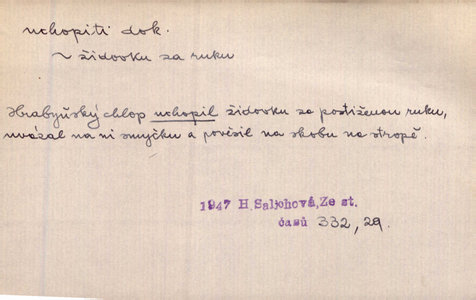 uchopiti dok.
~ židovku za ruku
Hrabyňský chlop uchopil židovku za postiženou ruku,
uvázal na ni smyčku a pověsil na skobu na stropě.
1947 H. Salichová, Ze st.
časů 332, 29.